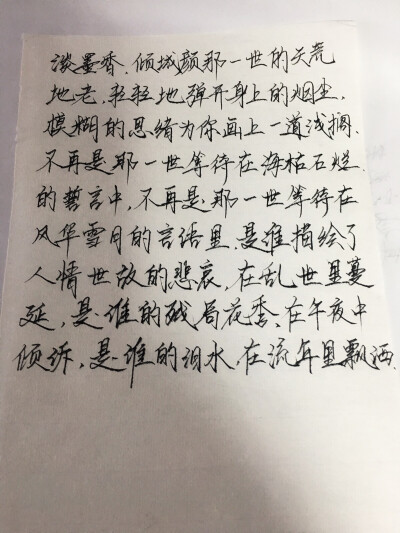 淡墨香,倾城颜那一世的天荒
地老,轻轻地弹开身上的烟尘,
模糊的思绪为你画上一道浅搁,
不再是那一世等待在海枯石烂
的誓言中,不再是那一世等待在
风华雪月的言语里,是谁描绘了
人情世故的悲哀,在乱世里蔓
延,是谁的残局花香,在午夜中
倾诉,是谁的泪水,在流年里飘洒.